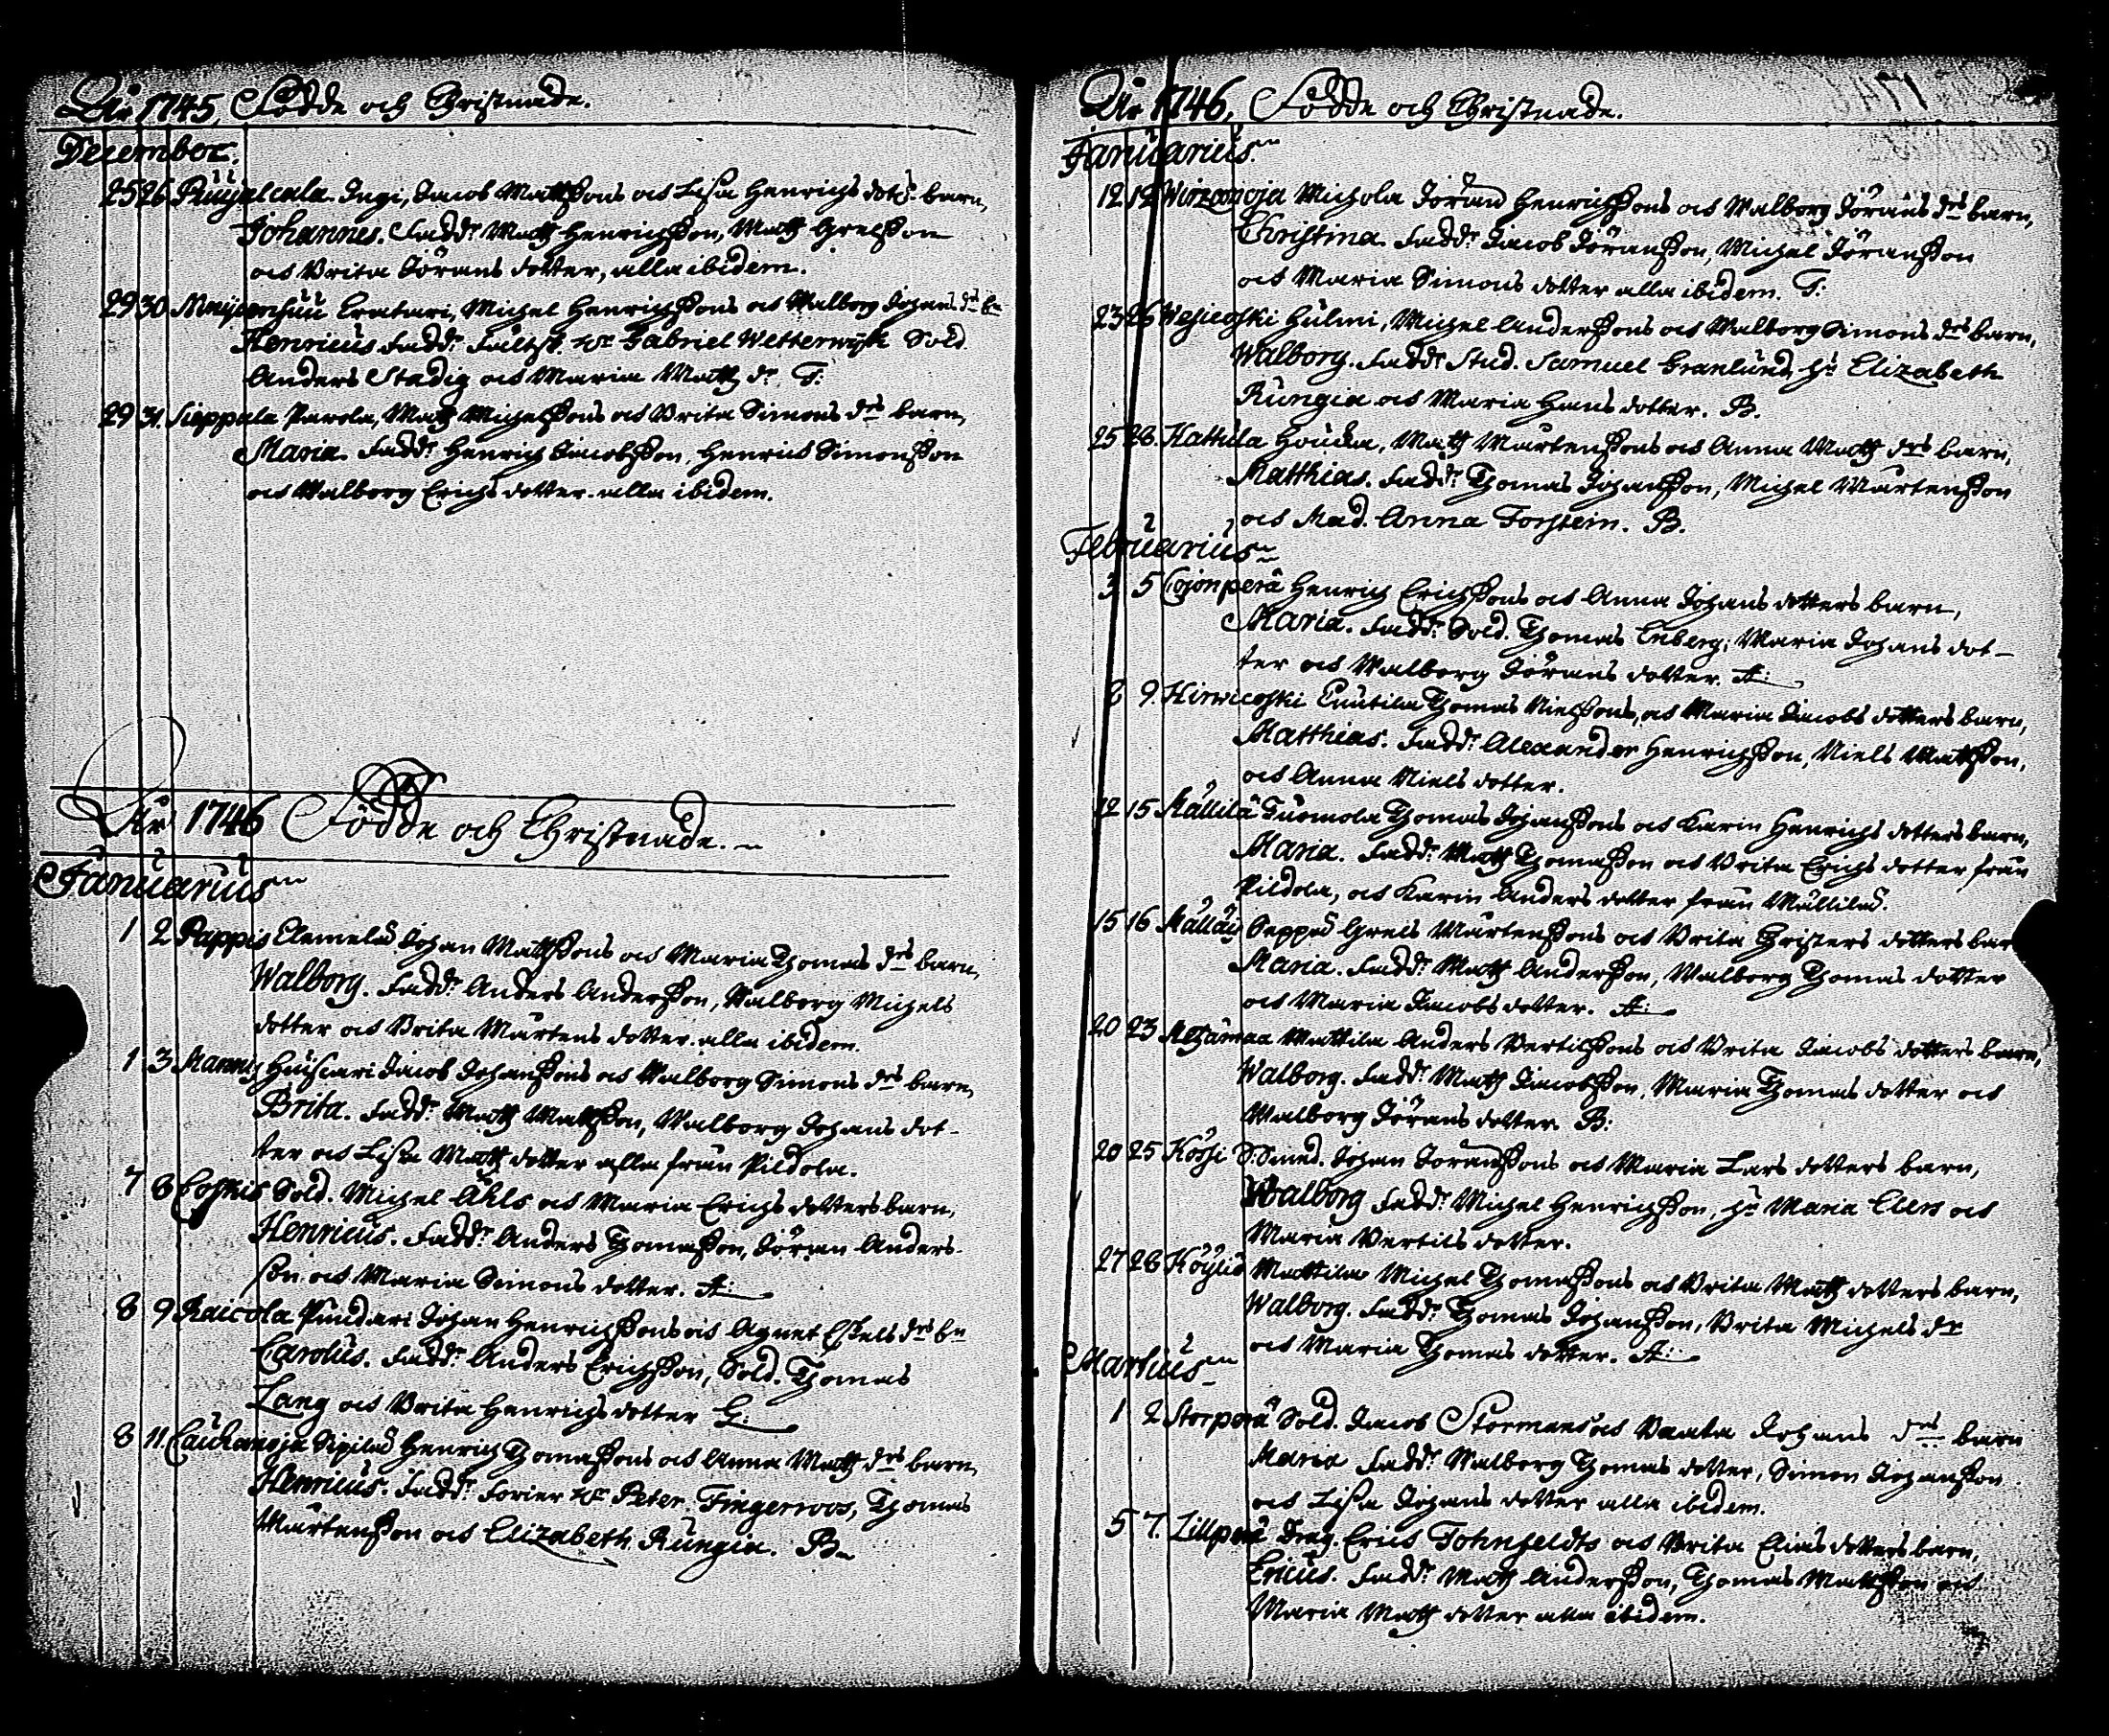 Åhr 1745, Födde och Christnade.
December.
25 26 Ingi, Jacob Mattssons och Lisa Henrichs dotrs barn,
Johannes. Faddr Matth Henrichsson, Matth Grelsson
och Brita Jörans dotter, alla ibidem.
29 30 Eratari, Michel Henrichssons och Walborg Johans dr bn
Henricus Faddr Gabriel Wetterwijk Sold.
Anders Stadig och Maria Matth dr. T:
29 31. Sieppala Parola, Matth Michelssons och Brita Simons drs barn,
Maria. Faddr Henrich Jacobsson, Henrich Simonsson
och Walborg Erichs dotter. alla ibidem.
Åhr 1746 Födde och Christnade.
Januarius
1 2 Pappis Clemelä Johan Mattssons och Maria Thomas drs barn,
Walborg. Faddr Anders Andersson, Walborg Michels
dotter och Brita Mårtens dotter. alla ibidem.
1 3 Jacob Johanssons och Walborg Simons drs barn,
Brita. Faddr Matth Mattsson, Walborg Johans dot-
ter och Lisa Matth dotter alla från Pildola.
7 8 Coskis Sold. Michel Åhls och Maria Erichs dotters barn,
Henricus. Faddr Anders Thomasson, Jöran Anders-
son och Maria Simons dotter. A:
8 9 Raicola Pundari Johan Henrichssons och Agnet Eskels drs bn
Carolus. Faddr Anders Erichsson, Sold. Thomas
Lang och Brita Henrichs dotter G:
8 11. Caukanoja Sipilä Henrich Thomassons och Anna Matth drs barn,
Henricus. Faddr Forier Hr Peter Fingerroos, Thomas
Mårtensson och Elizabeth Rungia. B
Åhr 1746, Födde och Christnade.
Januarius
12 12 Wirzanoja Michola Jöran Henrichssons och Walborg Jörans drs barn,
Christina. Faddr Jacob Jöransson, Michel Jöransson
och Maria Simons dotter alla ibidem. T:
23 26 Wesicoski Hulmi, Michel Anderssons och Walborg Simons drs barn,
Walborg. Faddr Stud. Samuel Granlund, Elizabeth
Rungia och Maria Hans dotter. B.
25 28. Kattila Matth Mårtenssons och Anna Matth drs barn,
Matthias. Faddr Thomas Johansson, Michel Mårtensson
och Mad. Anna Forstein. B.
Februarius
3 5 Cojonperä Henrich Erichssons och Anna Johans dotters barn,
Maria. Faddr Sold. Thomas Enberg, Maria Johans dot-
ter och Walborg Jörans dotter. A:
8 9. Hirwicoski Cuutila Thomas Nielssons, och Maria Jacobs dotters barn,
Matthias. Faddr Alexander Henrichsson, Niels Mattsson,
och Anna Niels dotter.
12 15 Mällilä Tuomola Thomas Johanssons och Karin Henrichs dotters barn,
Maria. Faddr Matth Thomasson och Brita Erichs dotter från
Pildola, och Karin Anders dotter från Mällilä.
15 16 Seppä Grels Mårtenssons och Brita Christers dotters bar
Maria. Faddr Matth Andersson, Walborg Thomas dotter
och Maria Jacobs dotter. A:
20 23 Metzämaa Mattila Anders Bertilssons och Brita Jacobs dotters barn,
Walborg. Faddr Matth Jacobsson, Maria Thomas dotter och
Walborg Jörans dotter. B:
20 25 Johan Jöranssons och Maria Lars dotters barn,
Walborg Faddr Michel Henrichsson, Maria Clers och
Maria Bertils dotter.
27 28 Köyliö Mattila Michel Thomassons och Brita Matth dotters barn,
Walborg. Faddr Thomas Johansson, Brita Michels dr
och Maria Thomas dotter. A:
Martius
1 2 Storperä Sold. Jacob Stormans och Beata Johans drs barn
Maria Faddr Walborg Thomas dotter, Simon Johansson
och Lisa Johans dotter alla ibidem.
5 7. Lillperä Drag. Erich Tohnfeldts och Brita Elias dotters barn,
Ericus. Faddr Matth Andersson, Thomas Mattsson och
Maria Matth dotter alla ibidem.